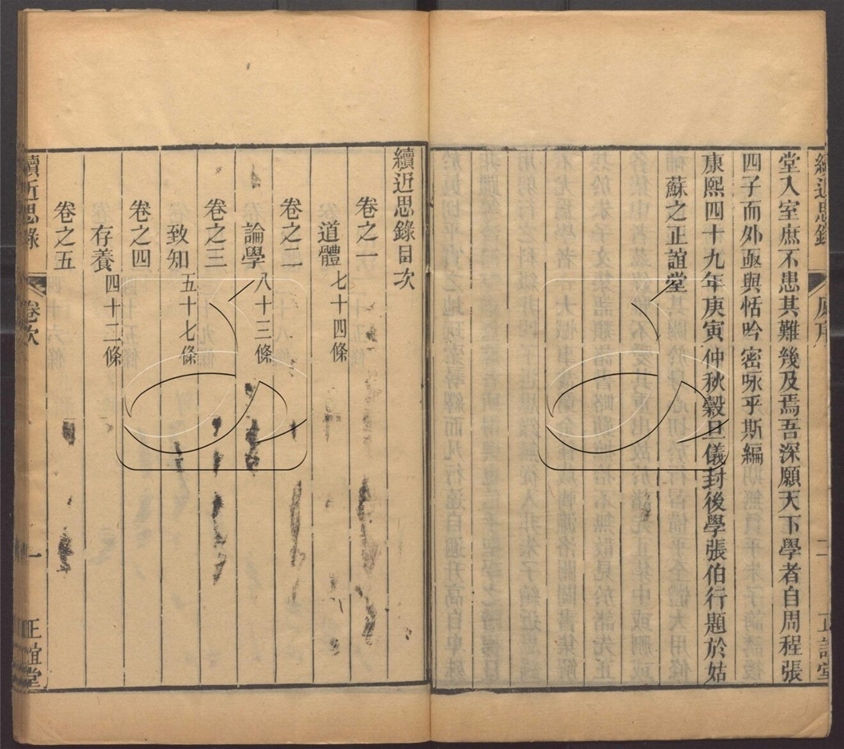 續近思錄
原序
二
正誼堂
堂入室庶不患其難幾及焉吾深願天下學者自周程張
四子而外亟與恬吟密咏乎斯編
康熙四十九年庚寅仲秋穀旦儀封後學張伯行題於姑
蘇之正誼堂
續近思錄目次
卷之一
道體七十四條
卷之二
論學八十三條
卷之三
致知五十七條
卷之四
存養四十二條
卷之五
續近思錄
卷次
一
正誼堂